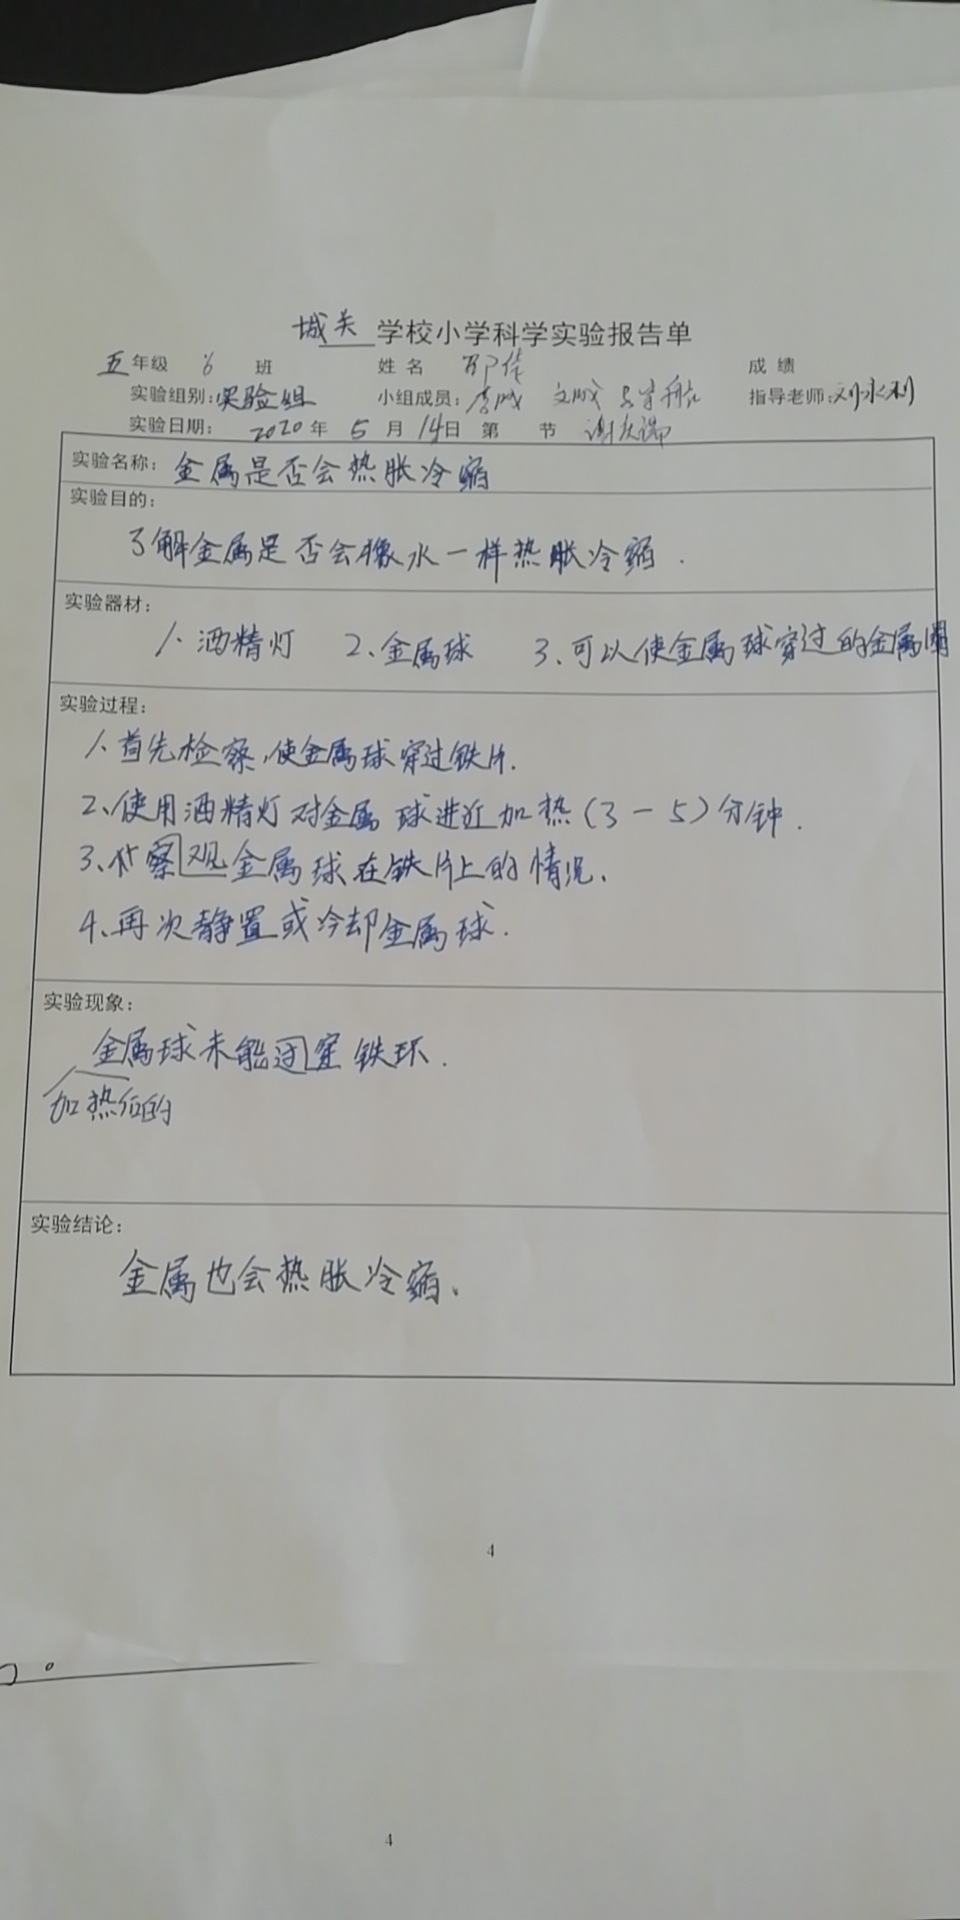 城关 学校小学科学实验报告单
五年级 6 班 姓名 成绩
实验组别:实验组 小组成员: 指导老师:刘永利
实验日期: 2020年 5 月 14日 第 节
实验名称: 金属是否会热胀冷缩
实验目的:
了解金属是否会像水一样热胀冷缩.
实验器材:
1、酒精灯 2、金属球 3、可以使金属球穿过的金属圈
实验过程:
1、首先检察,使金属球穿过铁片.
2、使用酒精灯对金属球进近加热(3-5)分钟.
3、察观金属球在铁片上的情况.
4、再次静置或冷却金属球.
实验现象:
金属球未能过穿铁环.
加热后的
实验结论:
金属也会热胀冷缩、
4
4